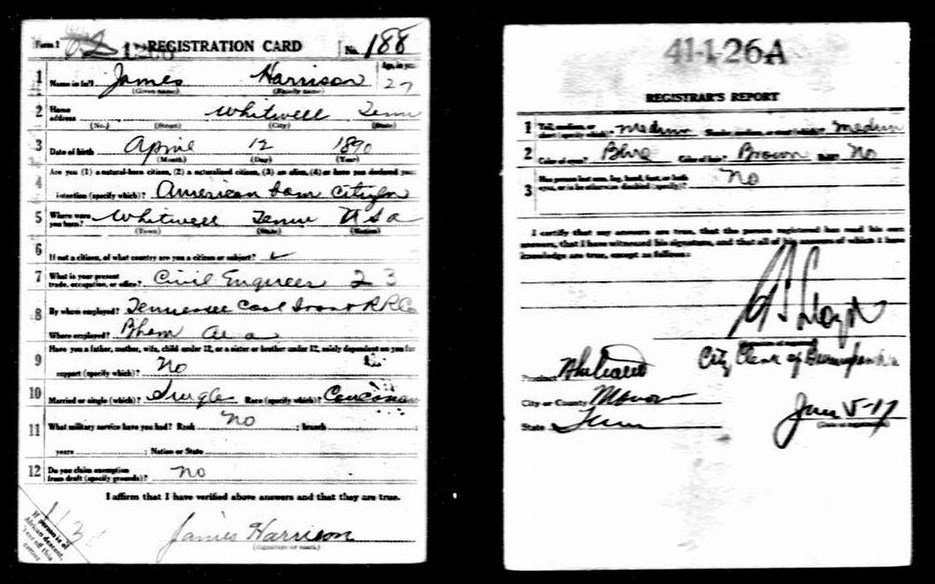 Form 1 REGISTRATION CARD No. 188
1 Name in full James Harrison Age, in yrs. 27
(Given name) (Family name)
2 Home address Whitwell Tenn
(No.) (Street) (City) (State)
3 Date of birth April 12 1890
(Month) (Day) (Year)
Are you (1) a natural-born citizen, (2) a naturalized citizen, (3) an alien, (4) or have you declared your
4 intention (specify which)? American born citizen
5 Where were you born? Whitwell Tenn USA
(Town) (State) (Nation)
6 If not a citizen, of what country are you a citizen or subject?
7 What is your present trade, occupation, or office? Civil Engineer 23
8 By whom employed? Tennessee Coal Iron & RR Co
Where employed? Bham Ala
9 Have you a father, mother, wife, child under 12, or a sister or brother under 12, solely dependent on you for
support (specify which)? No
10 Married or single (which)? Single Race (specify which)? Caucasian
11 What military service have you had? Rank No ; branch
years ; Nation or State
12 Do you claim exemption from draft (specify grounds)? No
I affirm that I have verified above answers and that they are true.
James Harrison
(Signature or mark)
If person is of African descent, tear off this corner
41-1-26A
REGISTRAR'S REPORT
1 Tall, medium, or short (specify which)? Medium Slender, medium, or stout (which)? Medium
2 Color of eyes? Blue Color of hair? Brown Bald? No
3 Has person lost arm, leg, hand, foot, or both eyes, or is he otherwise disabled (specify)? No
I certify that my answers are true, that the person registered has read his own
answers, that I have witnessed his signature, and that all of his answers of which I have
knowledge are true, except as follows:
Lloyd
(Signature of registrar)
City Clerk of Birmingham
Precinct
City or County
State Tenn
June 5-17
(Date of registration)